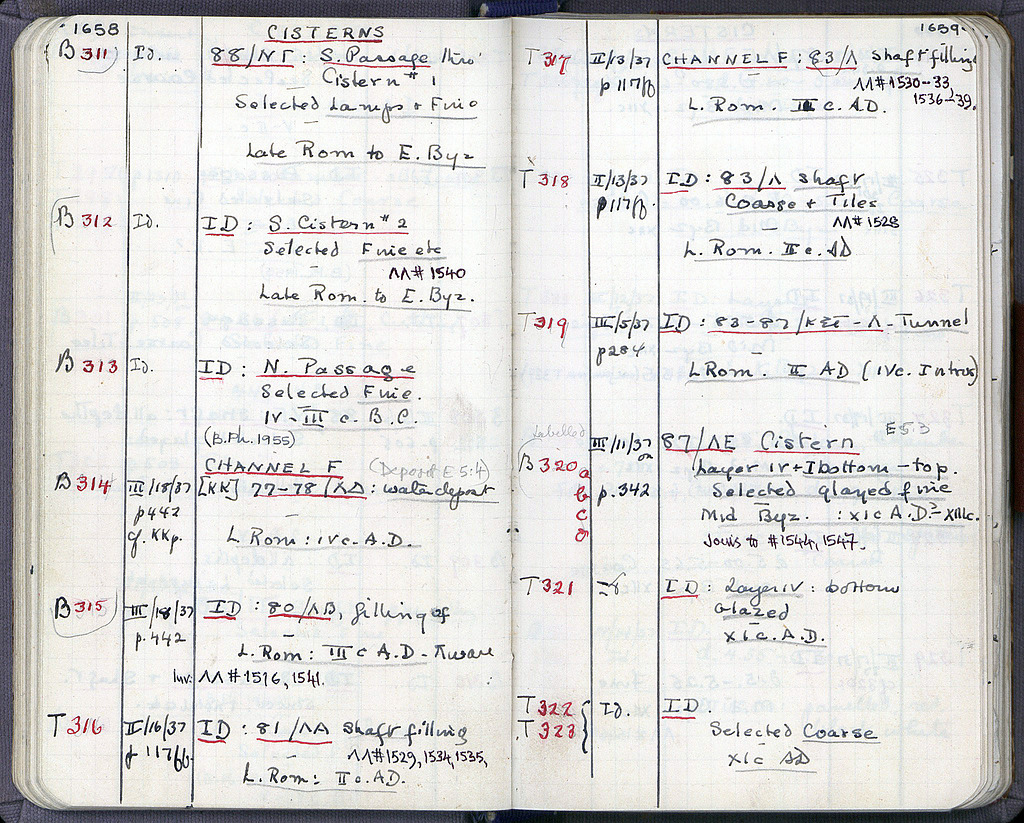 1658
CISTERNS
B 311 Id. 88/ΝΓ : S. Passage thro'
Cistern #1
Selected Lamps + Fine
Late Rom to E. Byz
B 312 Id. ID : S. Cistern #2
Selected Fine etc
ΛΛ# 1540
Late Rom. to E. Byz.
B 313 Id. ID : N. Passage
Selected Fine.
IV-III c. B.C.
(B.Ph. 1955)
CHANNEL F (Deposit E 5:4)
B 314 III/18/37 [KK] 77-78/ΛΔ : water deposit
p442
cf. KKp. L Rom : IV c. A.D.
B 315 III/18/37 ID : 80/ΛΒ, filling of
p. 442
L. Rom : III c A.D -
Inv. ΛΛ #1516, 1541.
T 316 II/16/37 ID : 81/ΛΑ shaft filling
p 117ff. ΛΛ#1529, 1534, 1535,
L. Rom : II c. A.D.
1659
T 317 II/13/37 CHANNEL F : 83/Λ shaft filling
p 117ff ΛΛ #1530-33,
L. Rom. III c. A.D. 1536-39.
T 318 II/13/37 ID : 83/Λ shaft
p117ff. Coarse + Tiles
ΛΛ #1528
L. Rom. II c. AD
T 319 III/5/37 ID : 83-87/ - Λ - Tunnel
p284
L Rom. II AD (IVc. Intrus)
Labelled III/11/37 on 87/ΛΕ Cistern E 5:3
B 320 a Layer IV + I bottom - top.
b p. 342 Selected glazed fine
c Mid Byz. : XI c A.D?-XIIIc.
d Joins to #1544, 1547.
T 321 ID : Layer IV : bottom
Glazed
XI c. A.D.
T 322 Id. ID
T 323 Selected Coarse
XI c AD